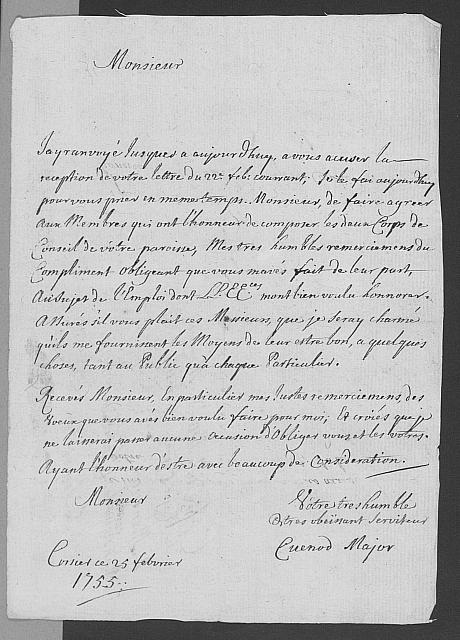 Monsieur
Jay ranvoyé Jusques a aujourdhuy, a vous acuser la
reception de votre lettre du 22e feb: courrant, Je le fai aujourdhuy
pour vous prier en meme temps, Monsieur, de faire agreer
aux Membres qui ont l'honneur de composer les deux Corps de
Conseil de votre paroisse, Mes tres humbles remerciemens du
Compliment obligeant que vous mavés fait de leur part,
Au Sujet de l'Emploi dont mont bien voulu honnorer.
Assurés sil vous plait ces Messieurs, que je seray charmé
quils me fournissent les Moyens de leur estre bon, a quelques
choses, tant au Public qu'a chaque Particulier.
Recevés Monsieur, En particulier mes Justes remerciemens, des
voeux que vous avés bien voulu faire pour moi, Et croiés que je
ne laisserai passer aucune occasion d'Obliger vous et les vôtres.
Ayant l'honneur d'éstre avec beaucoup de Consideration.
Monsieur
Vôtre tres humble
& tres obeissant Serviteur
Cuenod Major
Corsier ce 25 febvrier
1755: